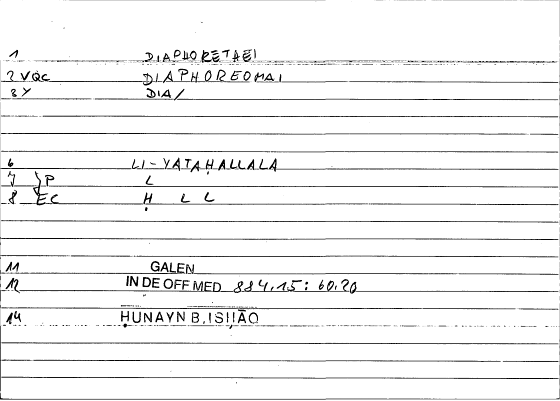 1 DIAPHORETAEI
2 VQC DIAPHOREOMAI
3 Y DIA/
6 LI-YATAḤALLALA
7 }P L
8 EC Ḥ L L
11 GALEN
12 IN DE OFF MED 884,15: 60,20
14 ḤUNAYN B. ISḤĀQ